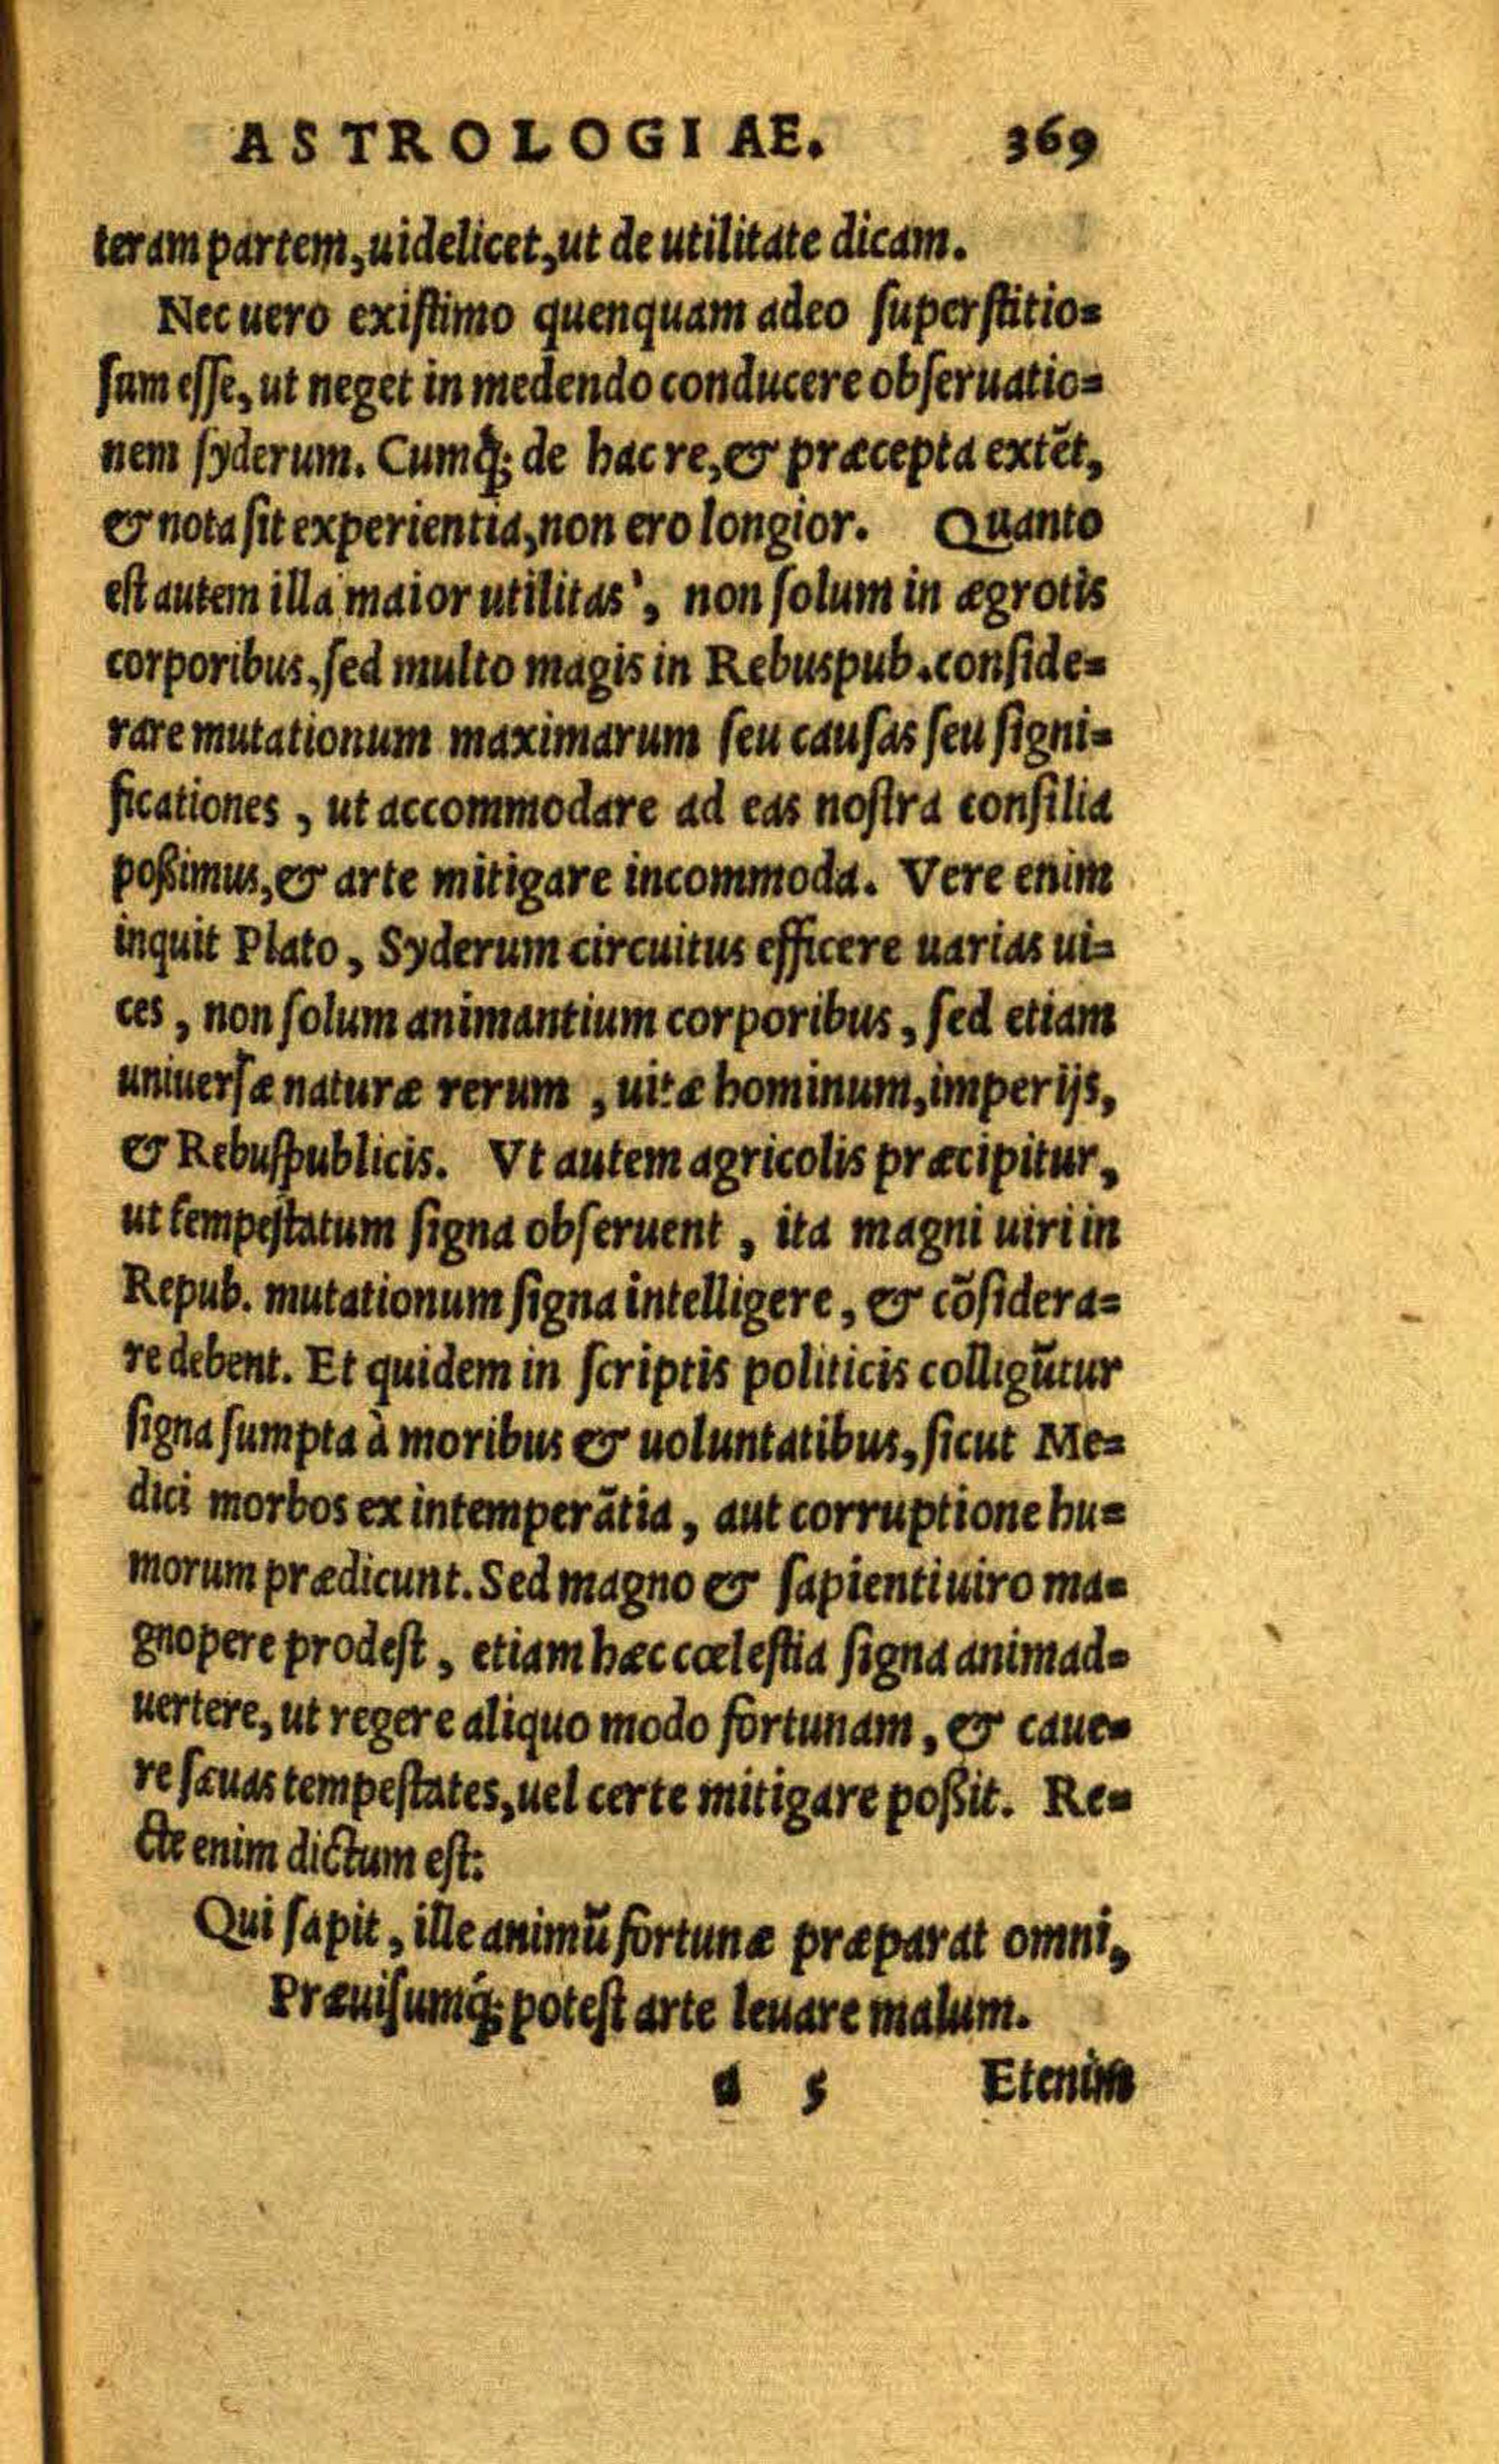 ASTROLOGIAE. 369
teram partem, uidelicet, ut de utilitate dicam.
Nec uero existimo quenquam adeo superstitio=
sum esse, ut neget in medendo conducere obseruatio=
nem syderum. Cumq́; de hac re, & præcepta extēt,
& nota sit experientia, non ero longior. Quanto
est autem illa maior utilitas', non solum in ægrotis
corporibus, sed multo magis in Rebuspub. conside=
rare mutationum maximarum seu causas seu signi=
ficationes, ut accommodare ad eas nostra consilia
poßimus, & arte mitigare incommoda. Vere enim
inquit Plato, Syderum circuitus efficere uarias ui=
ces, non solum animantium corporibus, sed etiam
uniuersæ naturæ rerum, uitæ hominum, imperijs,
& Rebuspublicis. Vt autem agricolis præcipitur,
ut tempestatum signa obseruent, ita magni uiri in
Repub. mutationum signa intelligere, & cōsidera=
re debent. Et quidem in scriptis politicis colligūtur
signa sumpta à moribus & uoluntatibus, sicut Me=
dici morbos ex intemperātia, aut corruptione hu=
morum prædicunt. Sed magno & sapienti uiro ma=
gnopere prodest, etiam hæc cœlestia signa animad=
uertere, ut regere aliquo modo fortunam, & caue=
re sæuas tempestates, uel certe mitigare poßit. Re=
cte enim dictum est:
Qui sapit, ille animū fortunæ præparat omni,
Præuisumq́; potest arte leuare malum.
a 5 Etenim